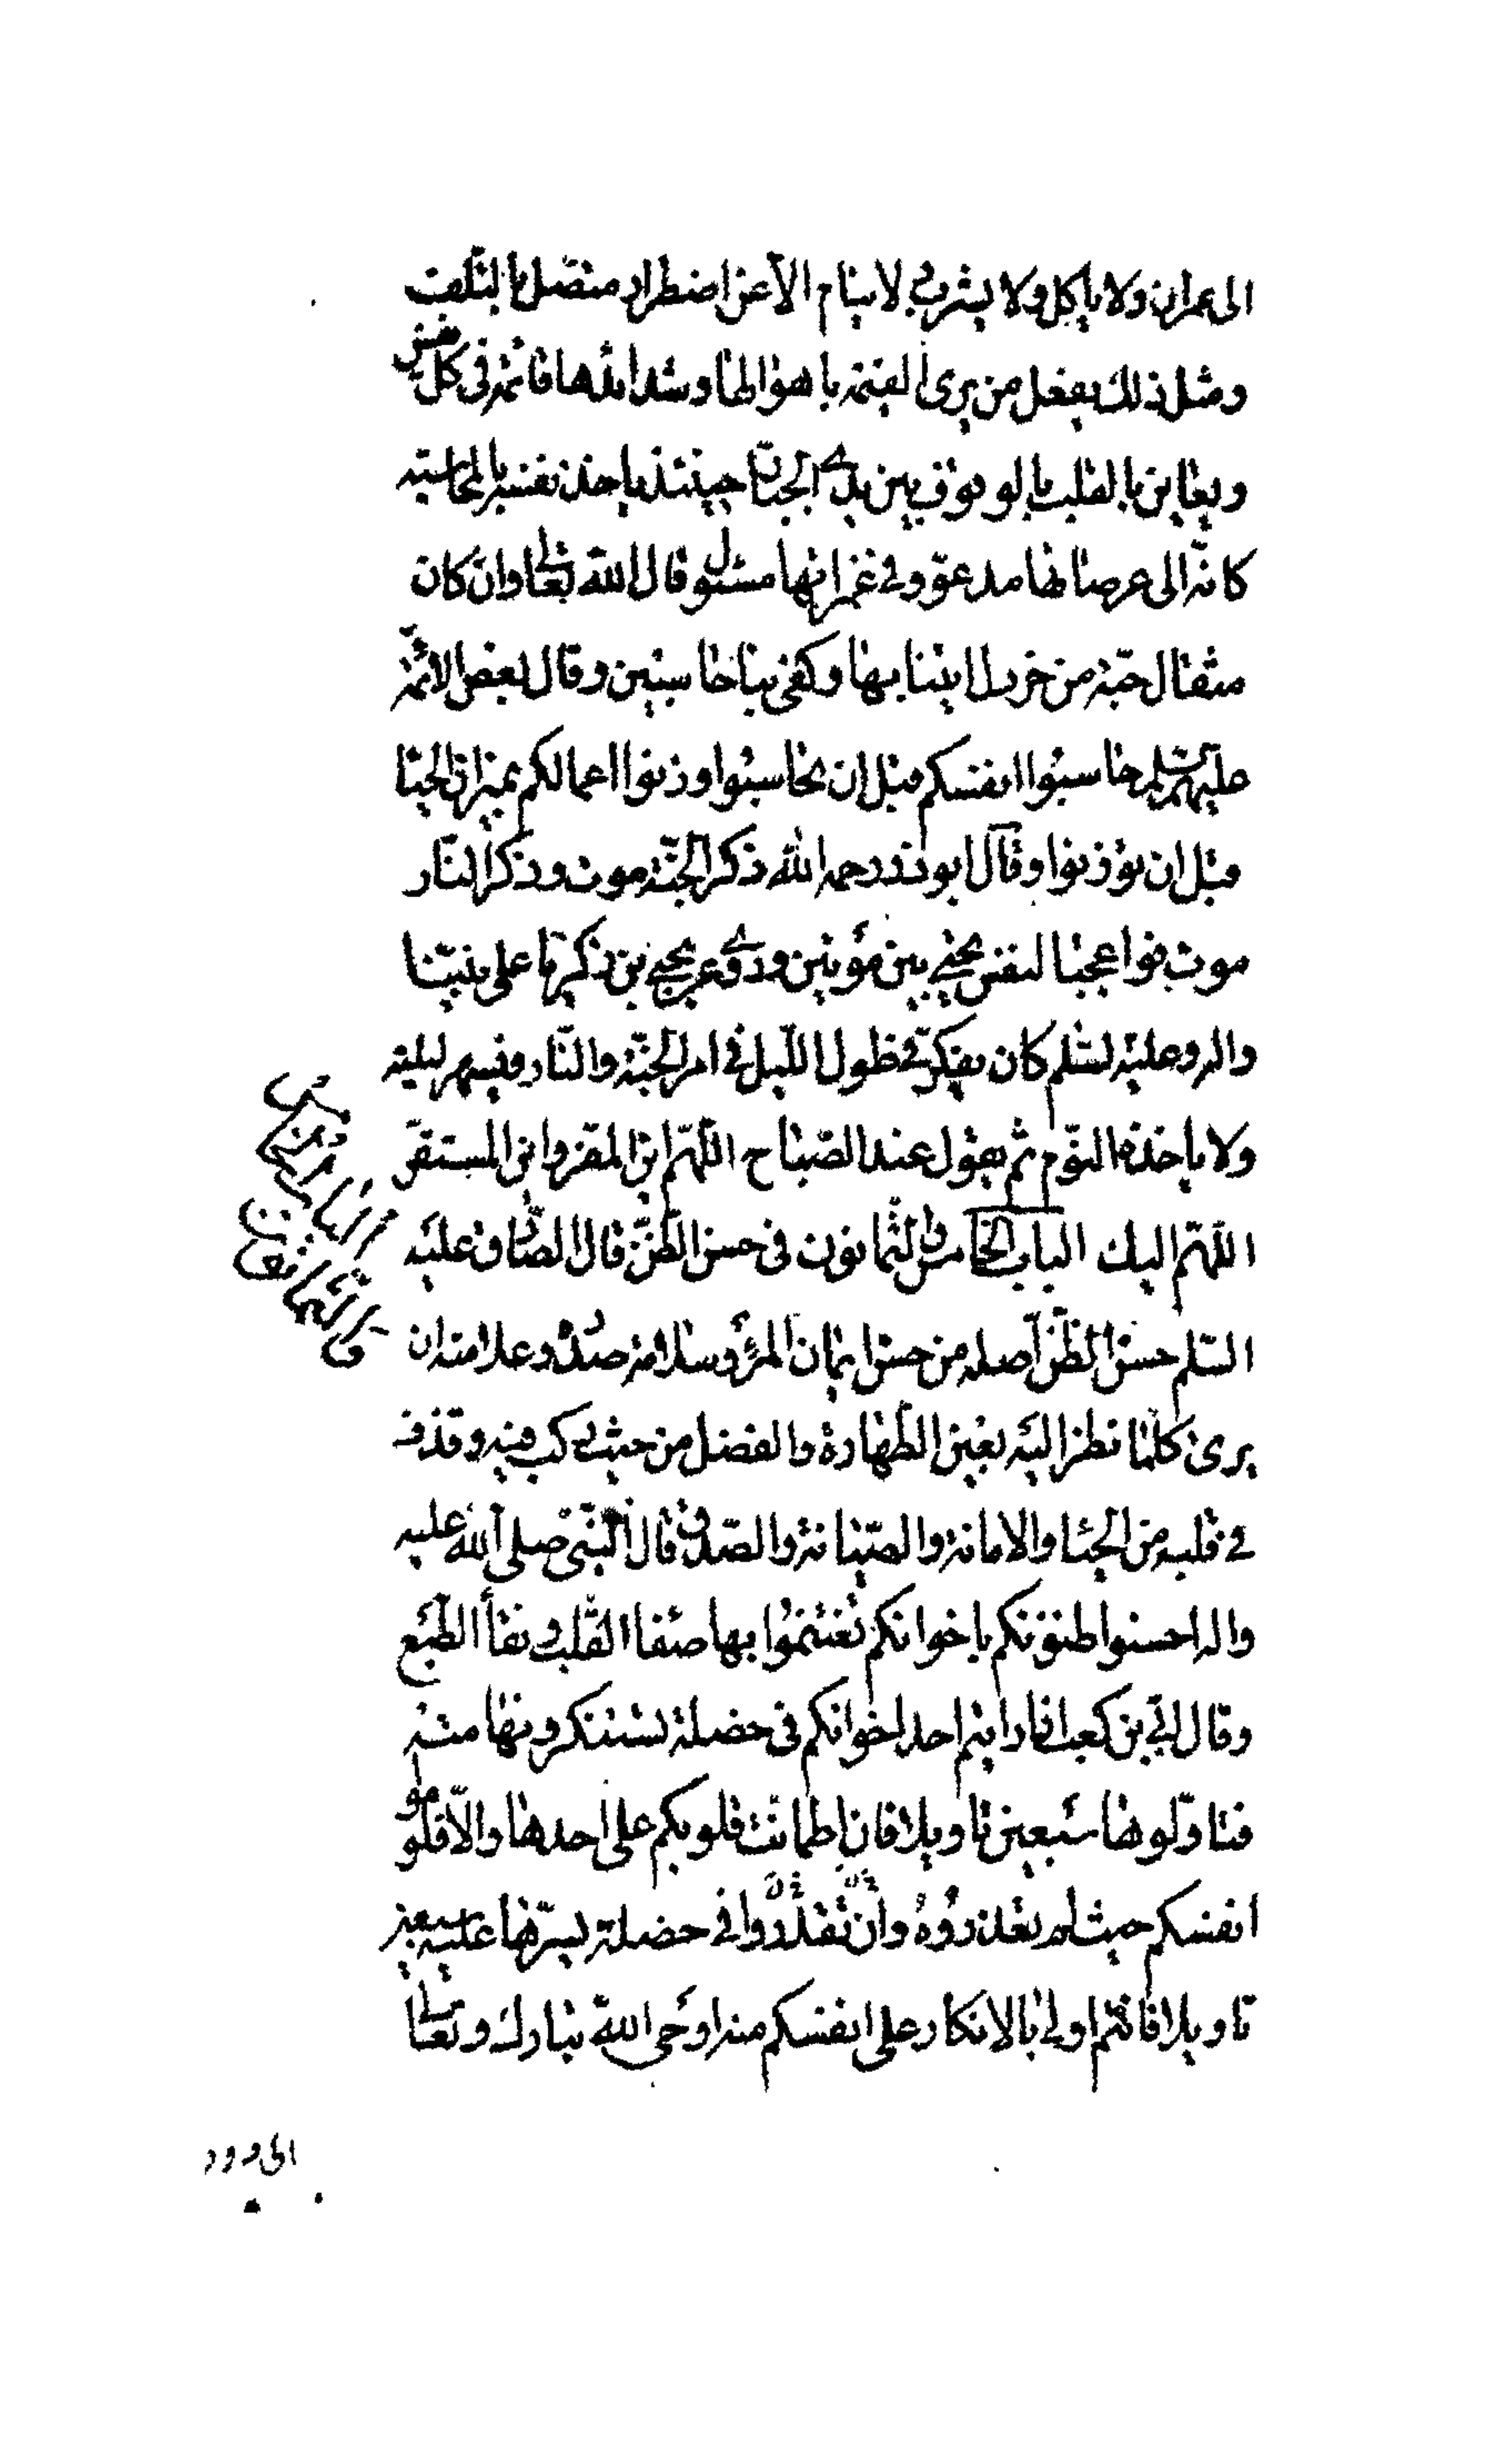 الى عمران ولا ياكل ولا يشرب ولا ينام الا عن اضطرار متصل بالتلف
ومثل ذلك يفعل من يرى القيمة باهوالها وشدايدها قائمة فى كل نفس
ويعاين بالقلب الوقوف بين يدى الجبار حينئذ ياخذ نفسه بالمحاسبة
كانه الى عرصاتها مدعو وفى غمراتها مسئول قال الله تعالى وان كان
مثقال حبة من خردل اتينا بها وكفى بنا حاسبين وقال بعض الائمة
عليهم السلم حاسبوا انفسكم قبل ان تحاسبوا وزنوا اعمالكم بميزان الحيا
قبل ان توزنوا وقال ابو ذر رحمه الله ذكر الجنة موت وذكر النار
موت فواعجبا لنفس يحيى بين موتين وروى عن يحيى بن ذكريا على نبينا
واله وعليه السلم كان يفكر فى طول الليل فى امر الجنة والنار فيسهر ليلته
ولا ياخذه النوم ثم يقول عند الصباح اللهم اين المفر واين المستقر
اللهم اليك الباب الخامس والثمانون فى حسن الظن قال الصادق عليه
السلم حسن الظن اصله من حسن ايمان المرء وسلامة صدره وعلامته ان
يرى كلما نظر اليه بعين الطهارة والفضل من حيث ركب فيه وقذف
فى قلبه من الحيا والامانة والصيانة والصدق قال النبى صلى الله عليه
واله احسنوا ظنونكم باخوانكم تغتنموا بها صفا القلب ونقأ الطبع
وقال ابى بن كعب اذا رايتم احد اخوانكم فى خصلة تستنكرونها منه
فتاولوها سبعين تاويلا فان اطمانت قلوبكم على احدها والا فلوموا
انفسكم حيث لم تعذروه وان تقدروا فى خصلة يسترها عليه سبعين
تاويلا فانتم اولى بالانكار على انفسكم منه اوحى الله تبارك وتعالى
الباب الخامس
والثمانون
الى داود